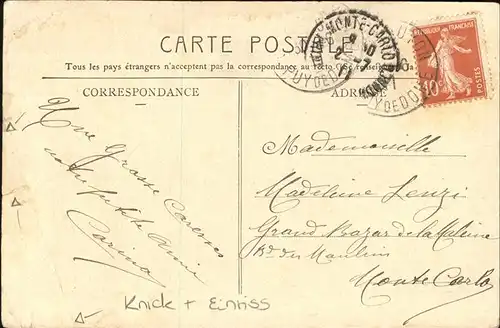 CARTE POSTALE
Tous les pays étrangers n'acceptent pas la correspondance au recto (Se renseigner à la
CORRESPONDANCE
ADRESSE
MONTE-CARLO
PUY DE DOME
REPUBLIQUE FRANÇAISE
10c
POSTES
Une Grosse Caresse
votre petite amie
Carina
Mademoiselle
Madeleine Lenzi
Grand Bazar de la Maline
Bd. du Moulins
Monte Carlo
Knick + Einriss